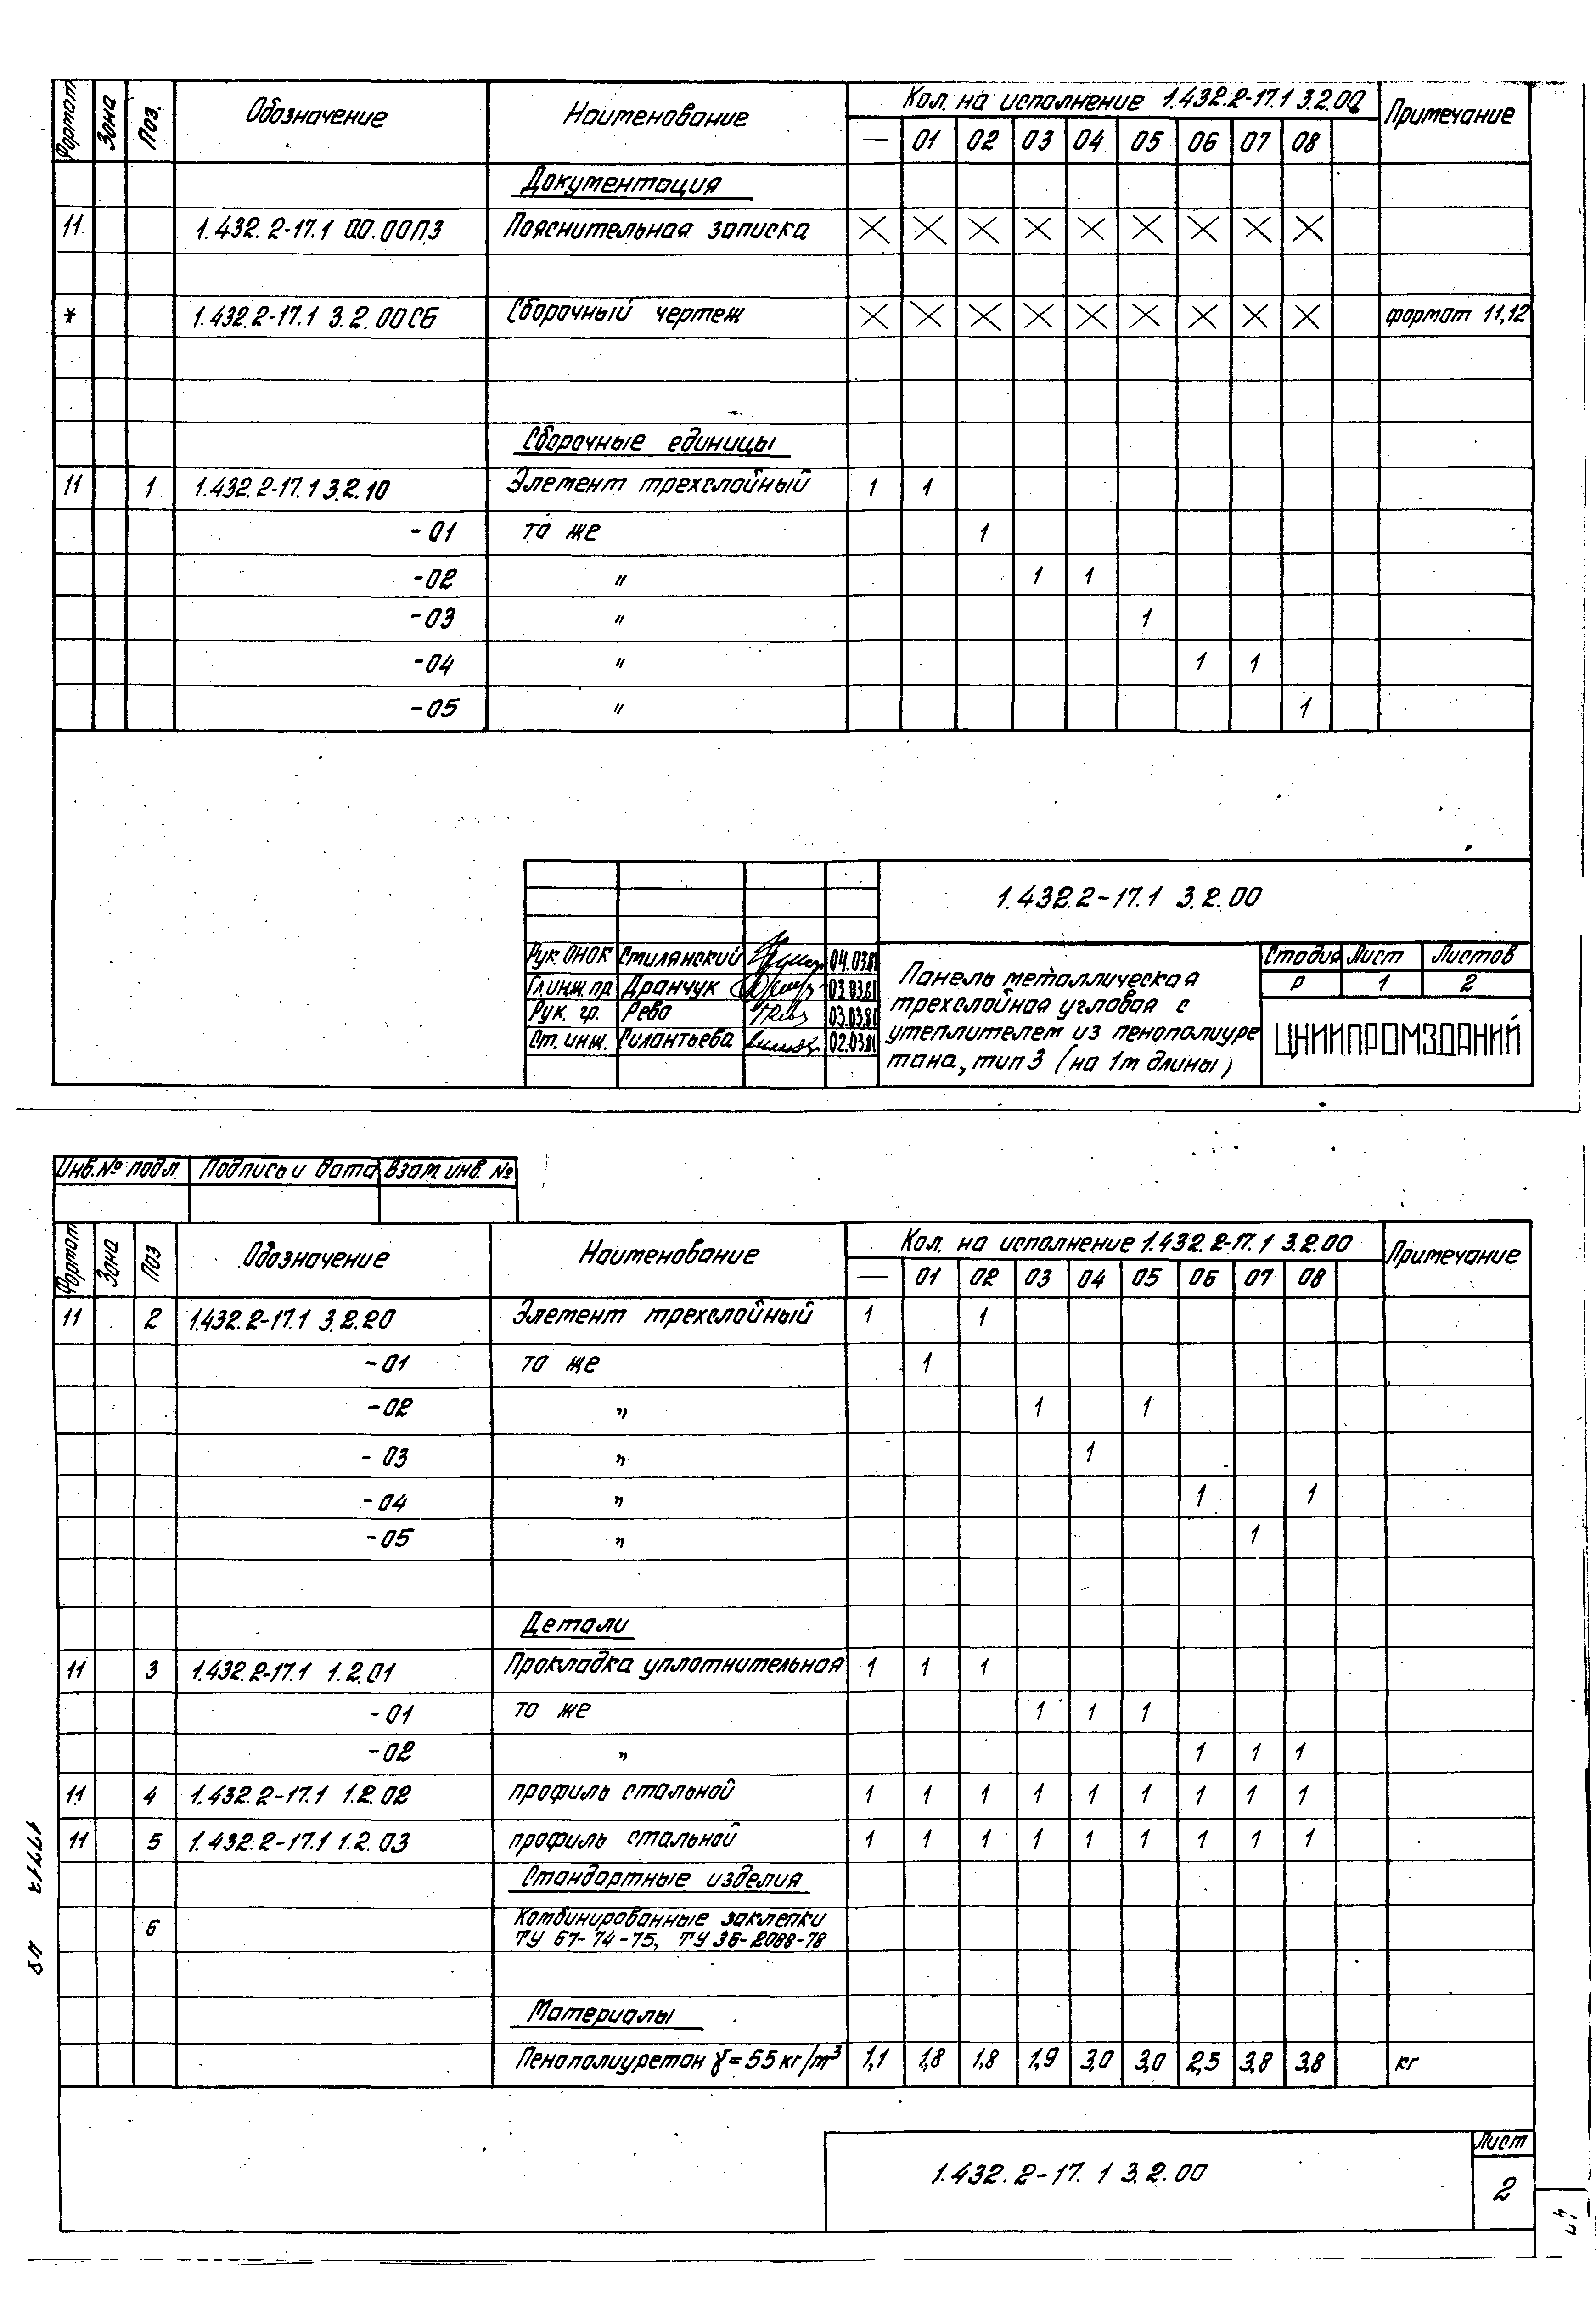 Формат Зона Поз. Обозначение Наименование Кол. на исполнение 1.432.2-17.1 3.2.00 Примечание
— 01 02 03 04 05 06 07 08
Документация
11 1.432.2-17.1 00.00ПЗ Пояснительная записка X X X X X X X X X
* 1.432.2-17.1 3.2.00СБ Сборочный чертеж X X X X X X X X X формат 11,12
Сборочные единицы
11 1 1.432.2-17.1 3.2.10 Элемент трехслойный 1 1
-01 то же 1
-02 " 1 1
-03 " 1
-04 " 1 1
-05 " 1
1.432.2-17.1 3.2.00
Рук. ОНОК Смилянский 04.03.81
Гл.инж.пр. Дранчук 03.03.81
Рук. гр. Рева 03.03.81
Ст. инж. Силантьева 02.03.81
Панель металлическая
трехслойная угловая с
утеплителем из пенополиуре
тана, тип 3 (на 1м длины)
Стадия Лист Листов
Р 1 2
ЦНИИПРОМЗДАНИЙ
Инв.№ подл. Подпись и дата Взам. инв. №
Формат Зона Поз Обозначение Наименование Кол. на исполнение 1.432.2-17.1 3.2.00 Примечание
— 01 02 03 04 05 06 07 08
11 2 1.432.2-17.1 3.2.20 Элемент трехслойный 1 1
-01 то же 1
-02 " 1 1
-03 " 1
-04 " 1 1
-05 " 1
Детали
11 3 1.432.2-17.1 1.2.01 Прокладка уплотнительная 1 1 1
-01 то же 1 1 1
-02 " 1 1 1
11 4 1.432.2-17.1 1.2.02 профиль стальной 1 1 1 1 1 1 1 1 1
11 5 1.432.2-17.1 1.2.03 профиль стальной 1 1 1 1 1 1 1 1 1
Стандартные изделия
6 Комбинированные заклепки
ТУ 67-74-75, ТУ 36-2088-78
Материалы
Пенополиуретан γ=55 кг/м³ 1,1 1,8 1,8 1,9 3,0 3,0 2,5 3,8 3,8 кг
1.432.2-17.1 3.2.00
Лист
2
17713 48
47